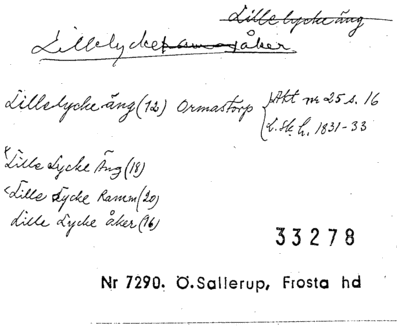 Lillelycke äng
Lillelycke åker
Lillelycke äng (12) Ormastorp { Akt nr 25 s. 16
L. Sk h. 1831-33
Lille Lycke Äng (18)
Lille Lycke Ramm (20)
Lille Lycke åker (16)
33278
Nr 7290. Ö. Sallerup, Frosta hd